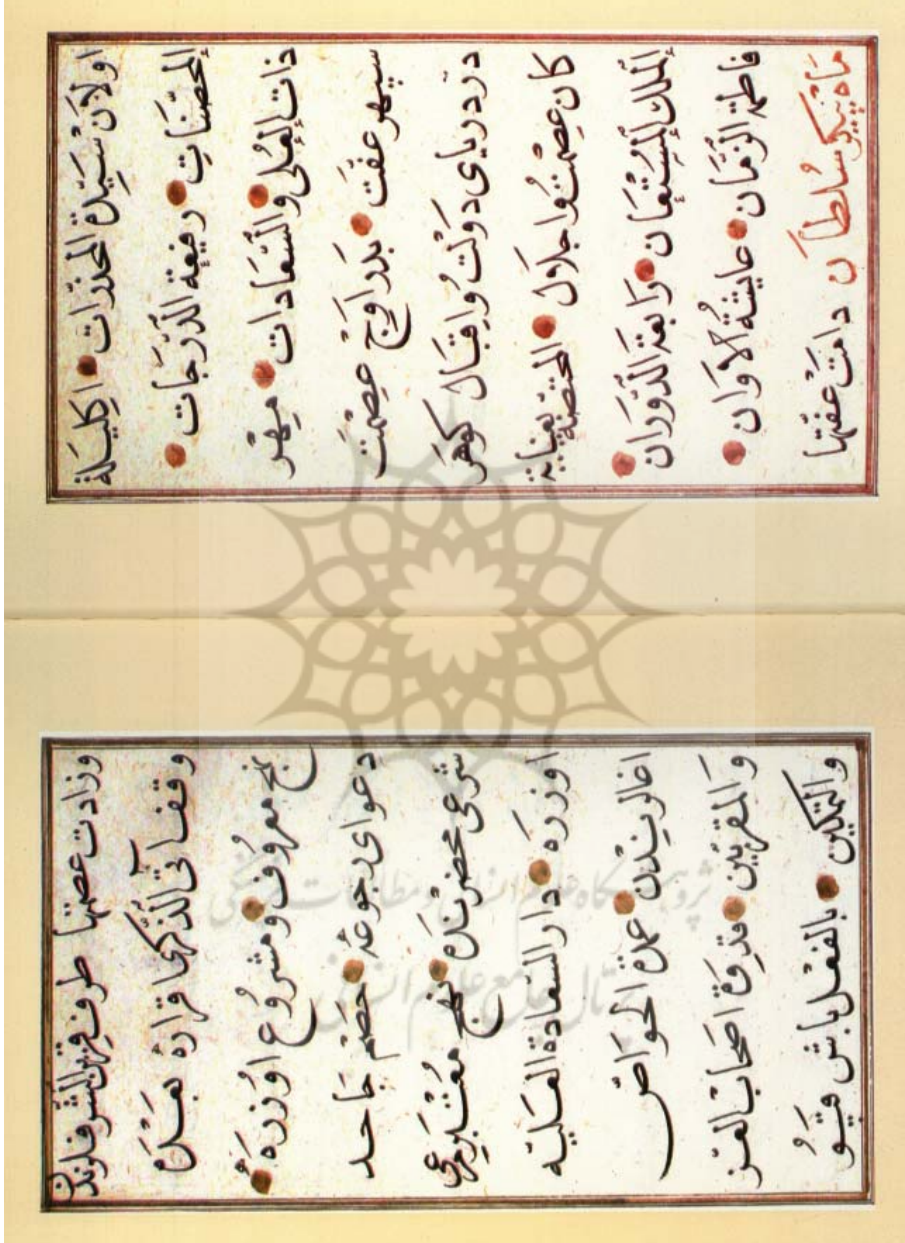 اولان سيدة المخدرات اكليلة
المحصنات رفيعة الدرجات
ذات العلى والسعادات مهر
سپهر عفت بدر اوج عصمت
در درياى دولت و اقبال كوهر
كان عصمت و اجلال المختصة بعناية
الملك المستعان رابعة الدوران
فاطمة الزمان عايشة الاوان
ماه پيكر سلطان دامت عفتها
وزادت عصمتها طرف قرين الشرفلرندن
وقفاتى الذكر اقراره بعده
نهج معروف و مشروع اوزره
دعواى رجوعه خصم جاحد
شرعى محضرنده نهج معتبر مرعى
اوزره دار السعادة العليه
اغالرندن عمدة الخواص
والمقربين قدوة اصحاب العز
والتمكين بالفعل باش قپو
پژوهشگاه علوم انسانی و مطالعات فرهنگی
پرتال جامع علوم انسانی